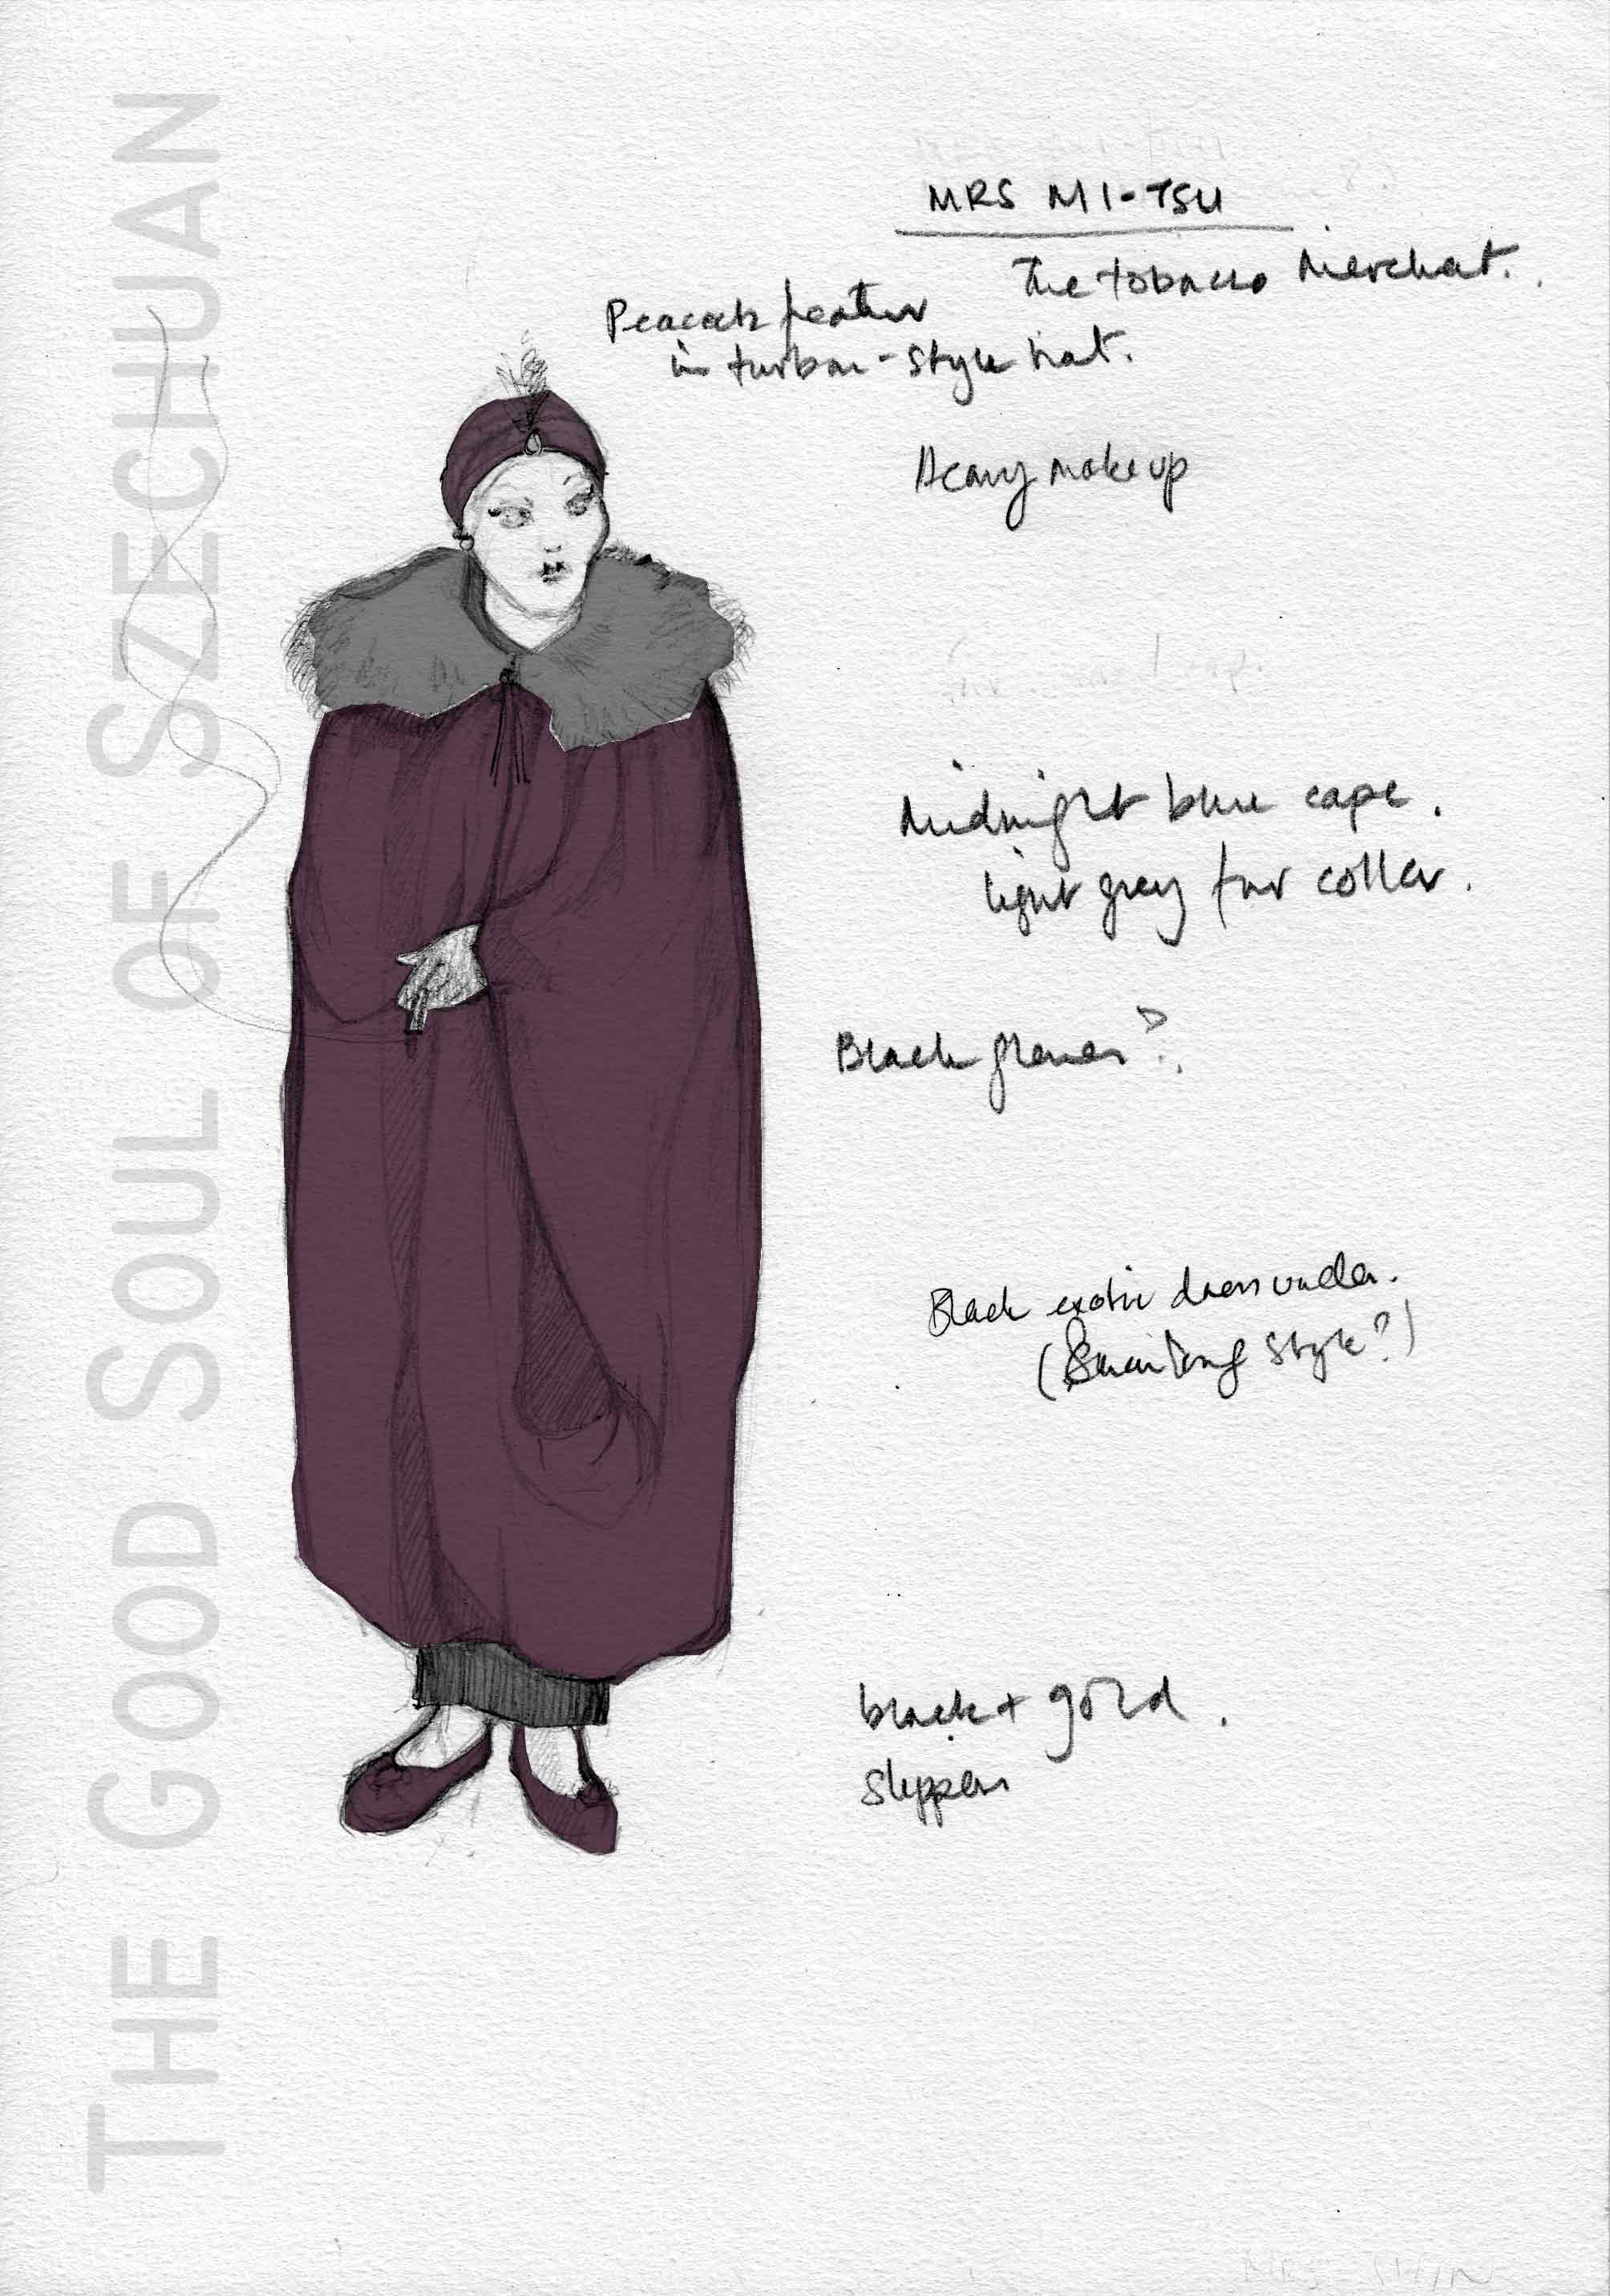 THE GOOD SOUL OF SZECHUAN
MRS MI-TSU
The tobacco Merchant.
Peacock feather
in turban-style hat.
Heavy make up
Midnight blue cape.
light grey fur collar.
Black gloves?
Black exotic dress under.
style?)
black + gold.
slippers